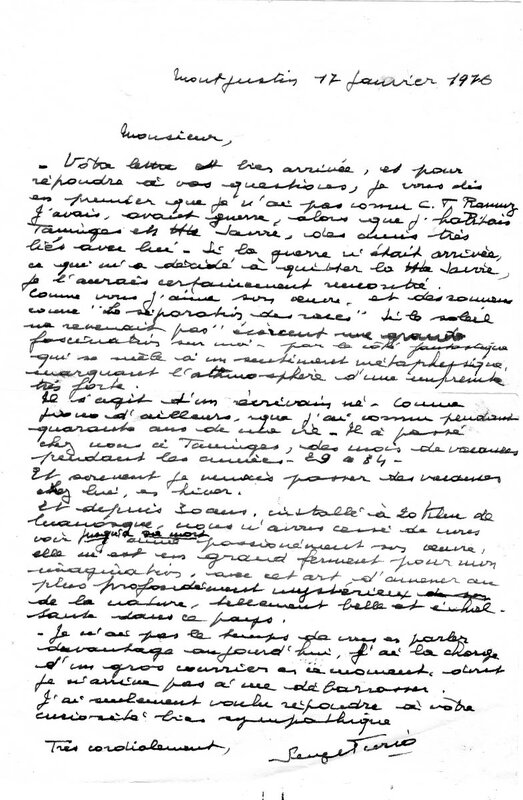 Montjustin 17 janvier 1976
Monsieur,
- Votre lettre est bien arrivée, et pour
répondre à vos questions, je vous dis
en premier que je n'ai pas connu C. F. Ramuz
J'avais, avant guerre, alors que j'habitais
Taninges en Hte Savoie, des amis très
liés avec lui. Si la guerre n'était arrivée,
ce qui m'a décidé à quitter la Hte Savoie,
je l'aurais certainement rencontré.
Comme vous j'aime son œuvre, et des romans
comme "la séparation des races" "Si le soleil
ne revenait pas" exercent une grande
fascination sur moi - par le côté fantastique
qui se mêle à un sentiment métaphysique,
marquant l'atmosphère d'une empreinte
très forte.
Il s'agit d'un écrivain né - comme
Giono d'ailleurs, que j'ai connu pendant
quarante ans de ma vie - Il a passé
chez nous à Taninges, des mois de vacances
pendant les années - 29 à 34 -
Et souvent je venais passer des vacances
chez lui, en hiver.
Et depuis 30 ans, installé à 20 Klm de
Manosque, nous n'avons cessé de nous
voir jusqu'à sa mort passionnément son œuvre,
elle m'est un grand ferment pour mon
imagination, avec cet art d'amener au
plus profondément mystérieux
de la nature, tellement belle et
dans ce pays.
- Je n'ai pas le temps de vous en parler
davantage aujourd'hui, j'ai la charge
d'un gros courrier en ce moment, dont
je n'arrive pas à me débarrasser.
J'ai seulement voulu répondre à votre
curiosité bien sympathique
Très cordialement,
Serge Fiorio